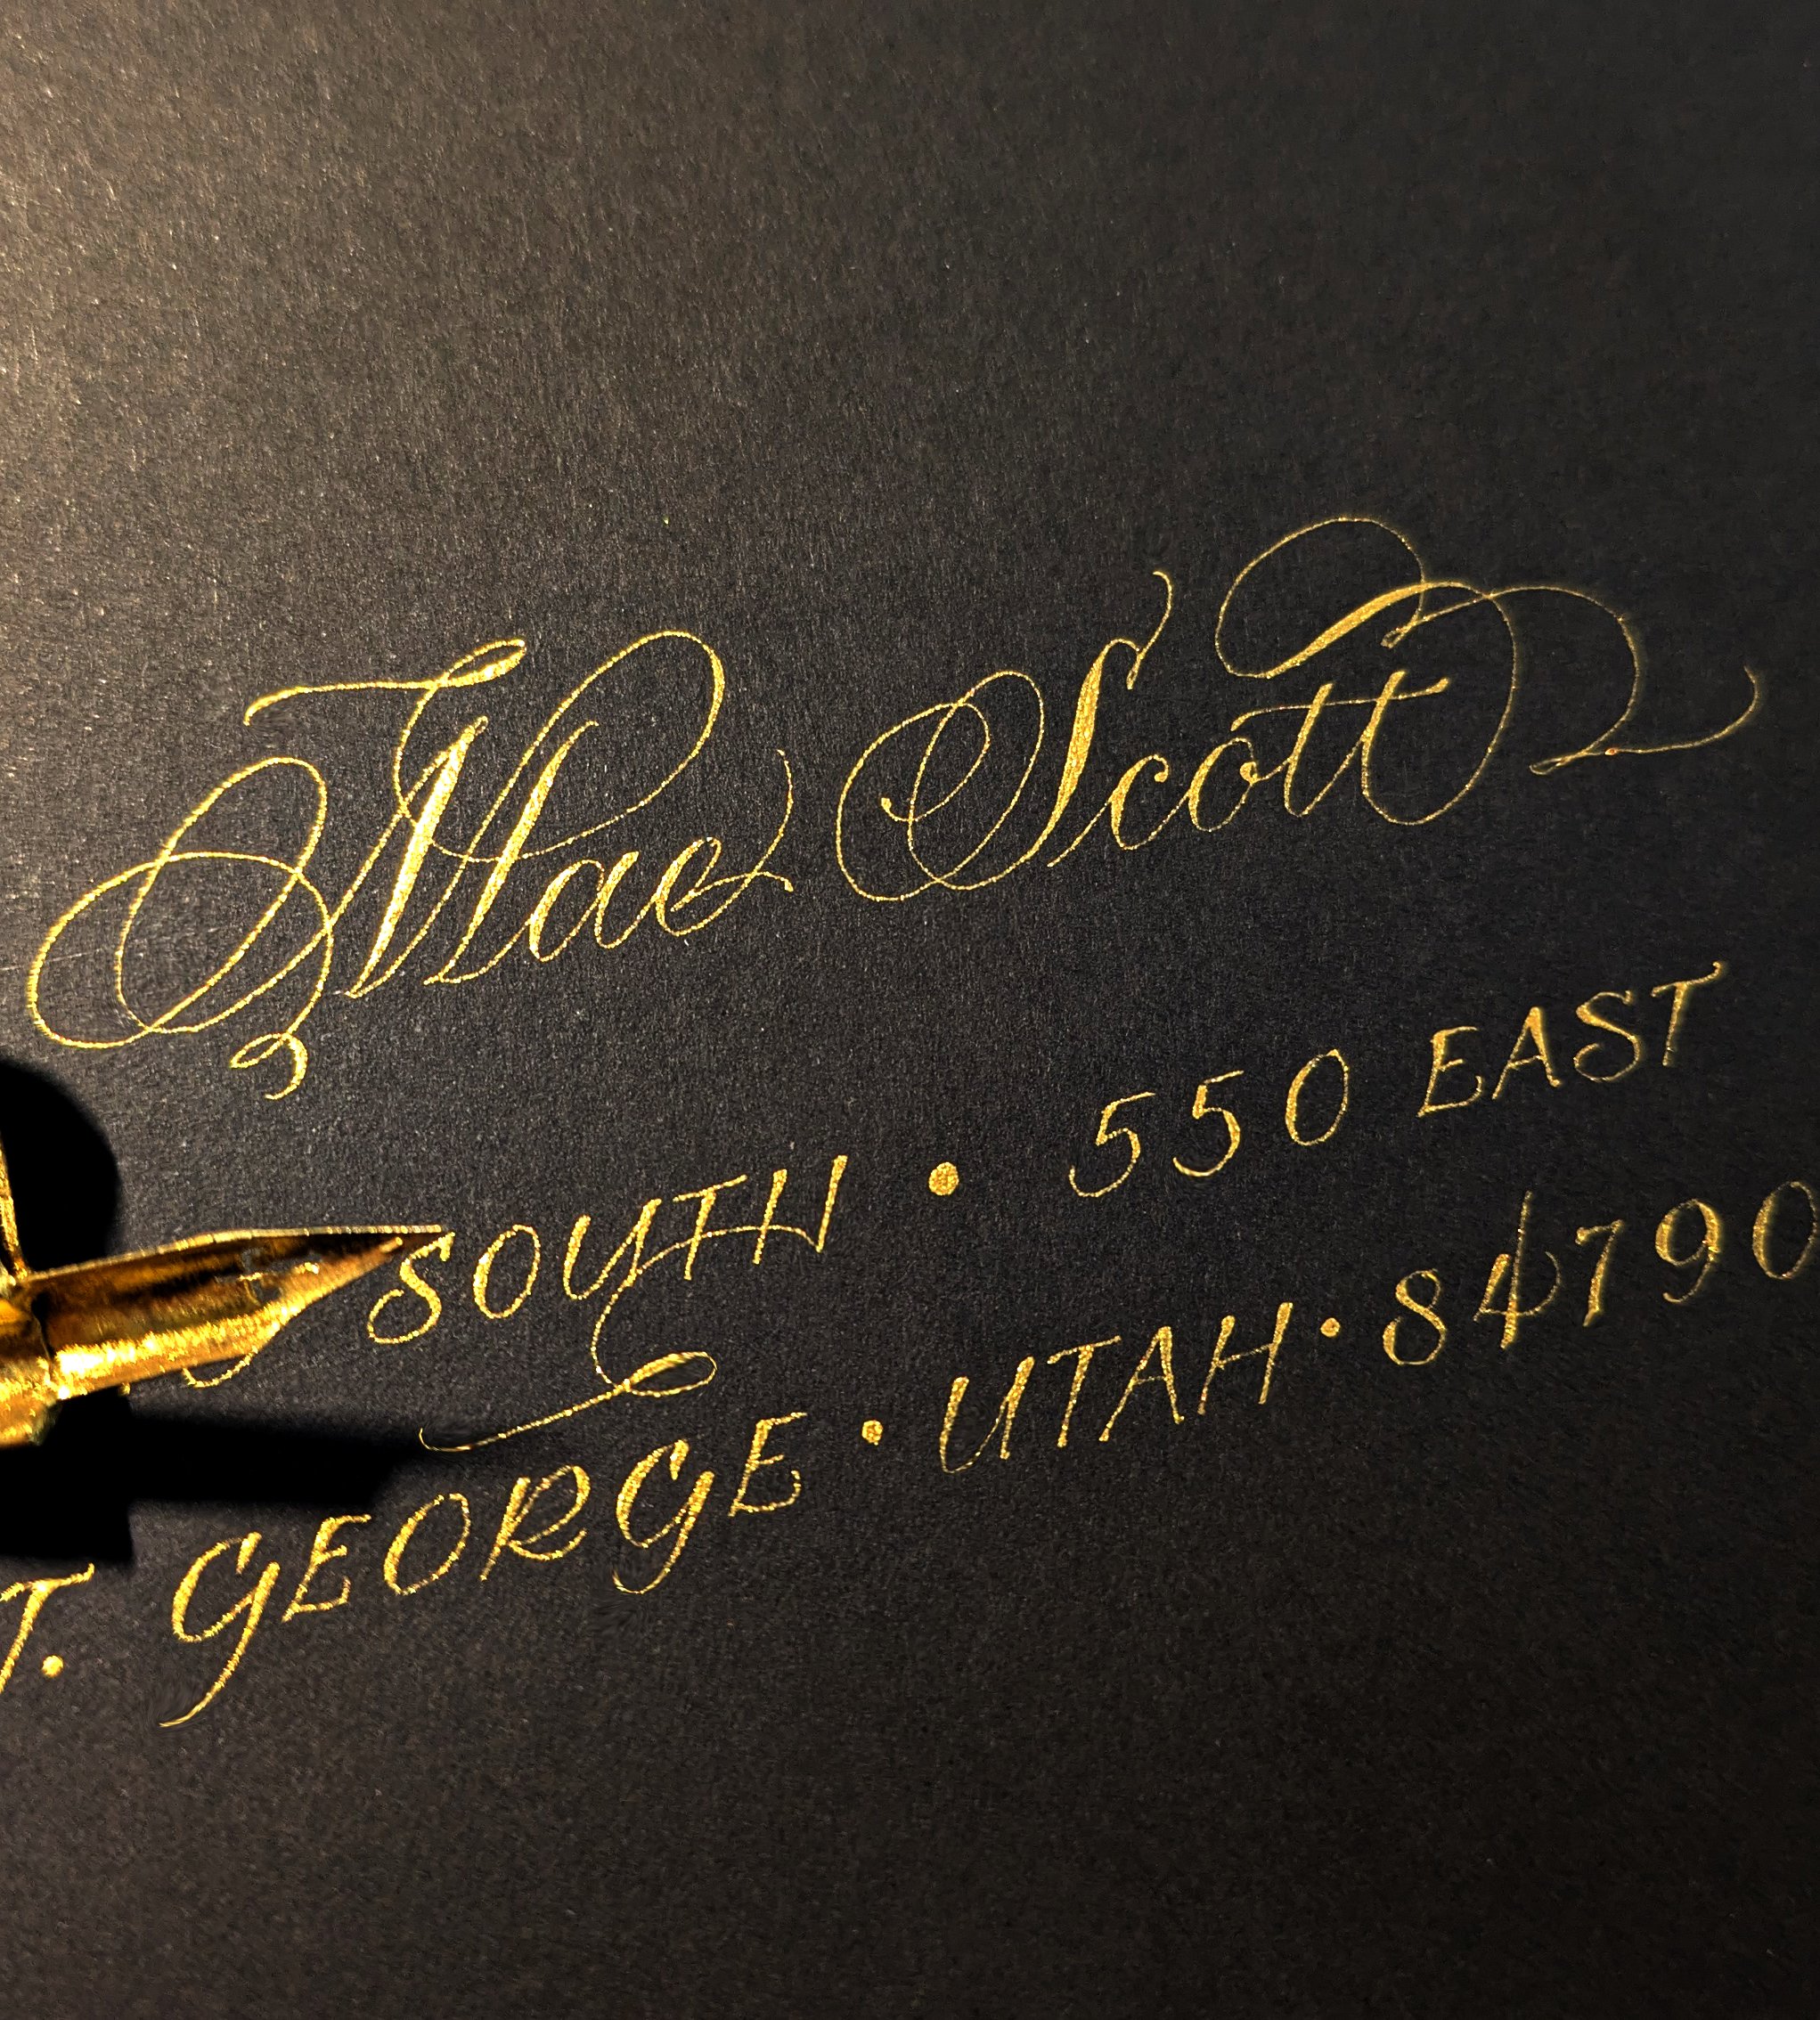 Mae Scott
SOUTH • 550 EAST
T. GEORGE • UTAH • 84790